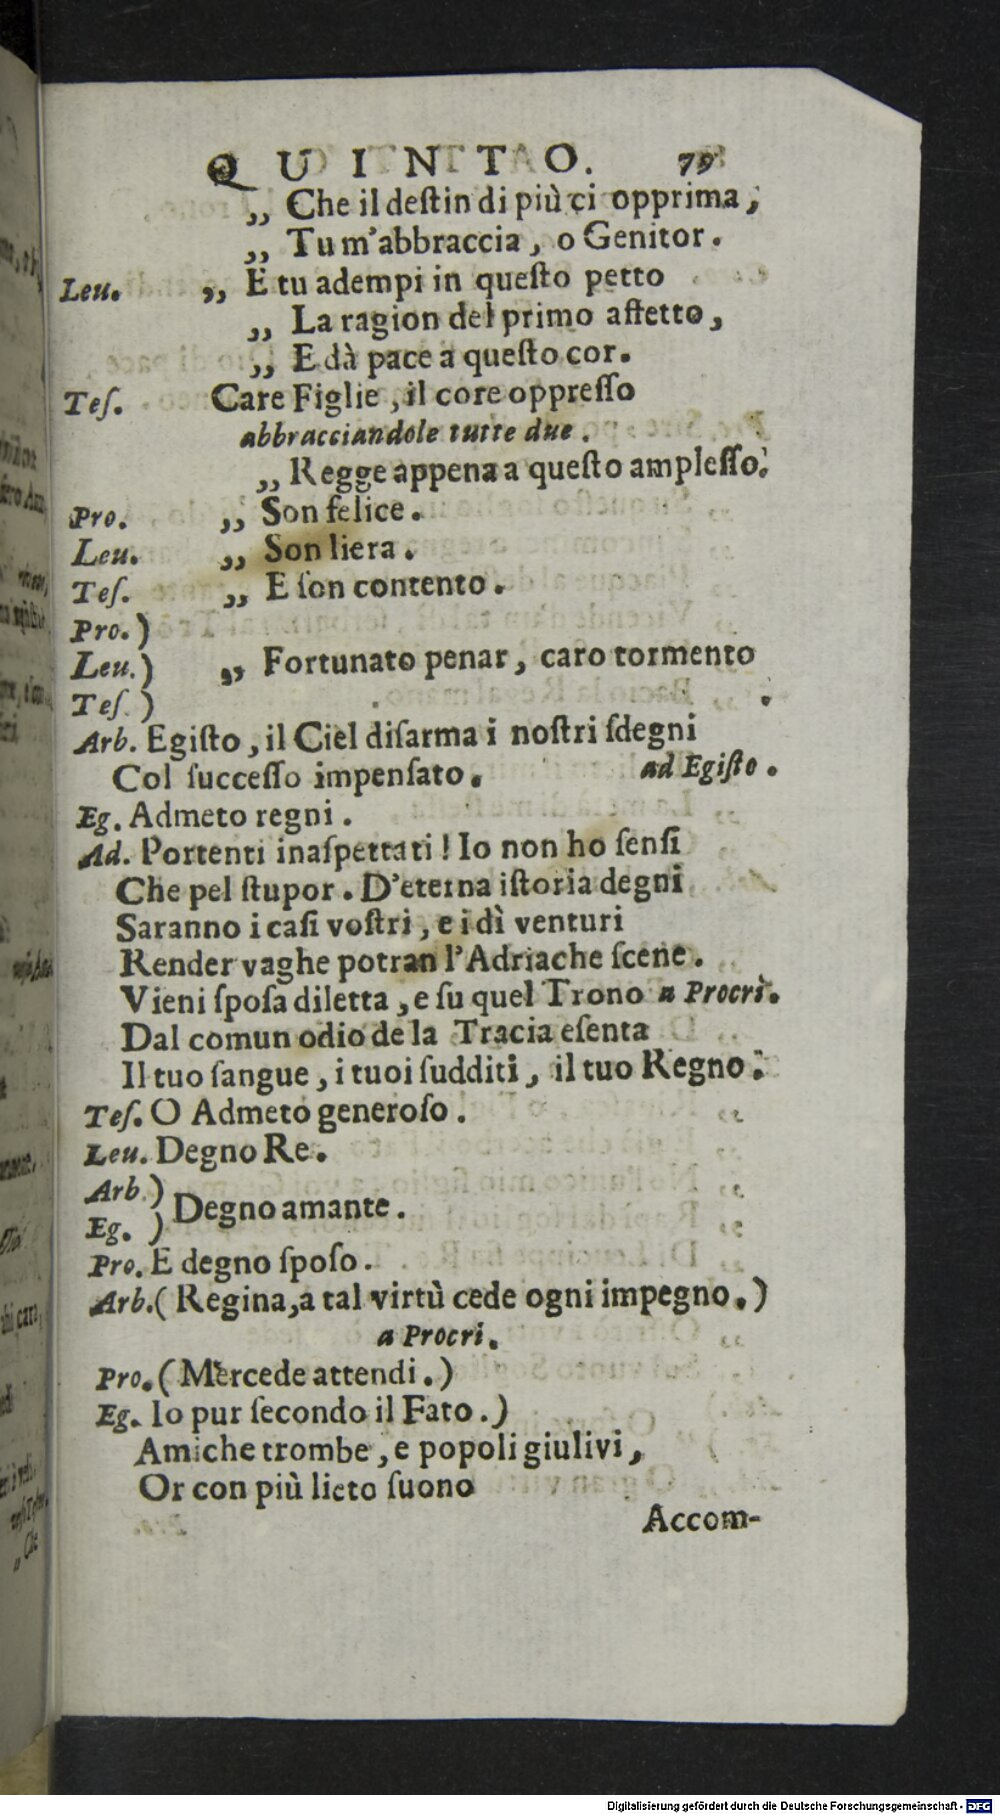 QUINTO. 79
,, Che il deſtin di più ci opprima,
,, Tu m'abbraccia, o Genitor.
Leu. ,, E tu adempi in queſto petto
,, La ragion del primo affetto,
,, E dà pace a queſto cor.
Teſ. Care Figlie, il core oppreſſo
abbracciandole tutte due.
,, Regge appena a queſto ampleſſo.
Pro. ,, Son felice.
Leu. ,, Son lieta.
Teſ. ,, E ſon contento.
Pro. )
Leu. ) ,, Fortunato penar, caro tormento
Teſ. ) .
Arb. Egiſto, il Ciel diſarma i noſtri ſdegni
Col ſucceſſo impenſato. ad Egiſto.
Eg. Admeto regni.
Ad. Portenti inaſpettati! Io non ho ſenſi
Che pel ſtupor. D'eterna iſtoria degni
Saranno i caſi voſtri, e i dì venturi
Render vaghe potran l'Adriache ſcene.
Vieni ſpoſa diletta, e ſu quel Trono a Procri.
Dal comun odio de la Tracia eſenta
Il tuo ſangue, i tuoi ſudditi, il tuo Regno.
Teſ. O Admeto generoſo.
Leu. Degno Re.
Arb. )
Eg. ) Degno amante.
Pro. E degno ſpoſo.
Arb. (Regina, a tal virtù cede ogni impegno.)
a Procri.
Pro. (Mercede attendi.)
Eg. Io pur ſecondo il Fato.)
Amiche trombe, e popoli giulivi,
Or con più lieto ſuono
Accom-
Digitalisierung gefördert durch die Deutsche Forschungsgemeinschaft - DFG